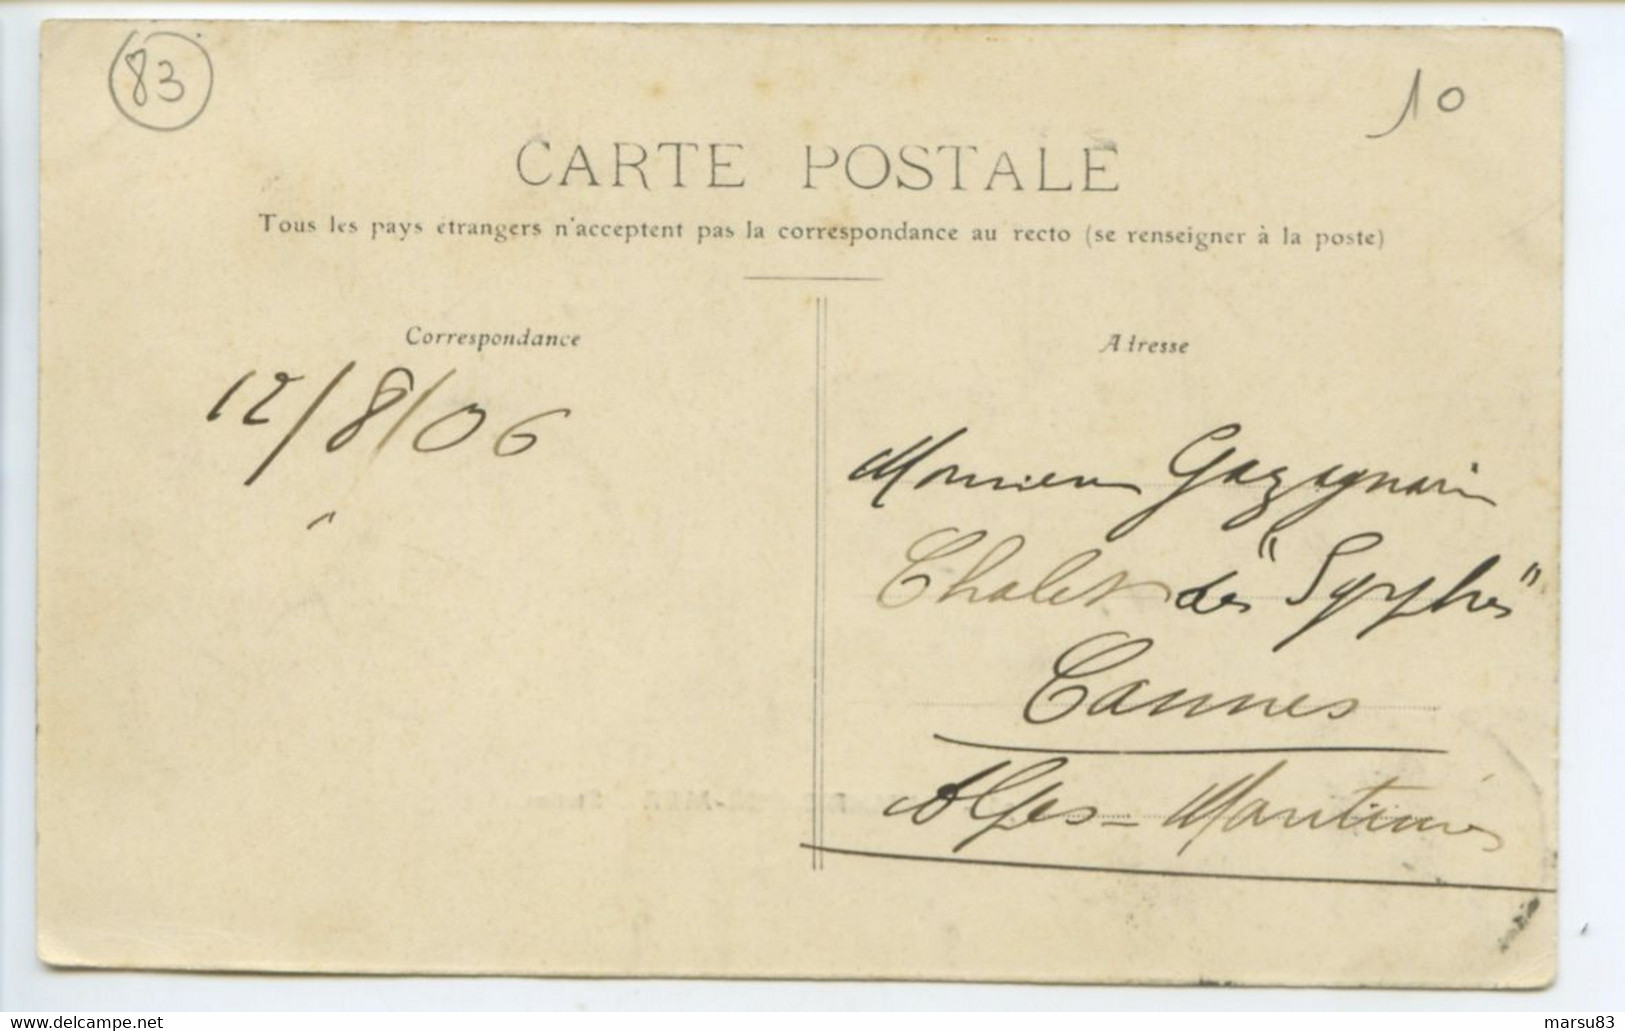 83
10
CARTE POSTALE
Tous les pays étrangers n'acceptent pas la correspondance au recto (se renseigner à la poste)
Correspondance
Adresse
12/8/06
Monsieur Gazagnaire
Chalet des "Sylphes"
Cannes
Alpes-Maritimes
www.delcampe.net
marsu83